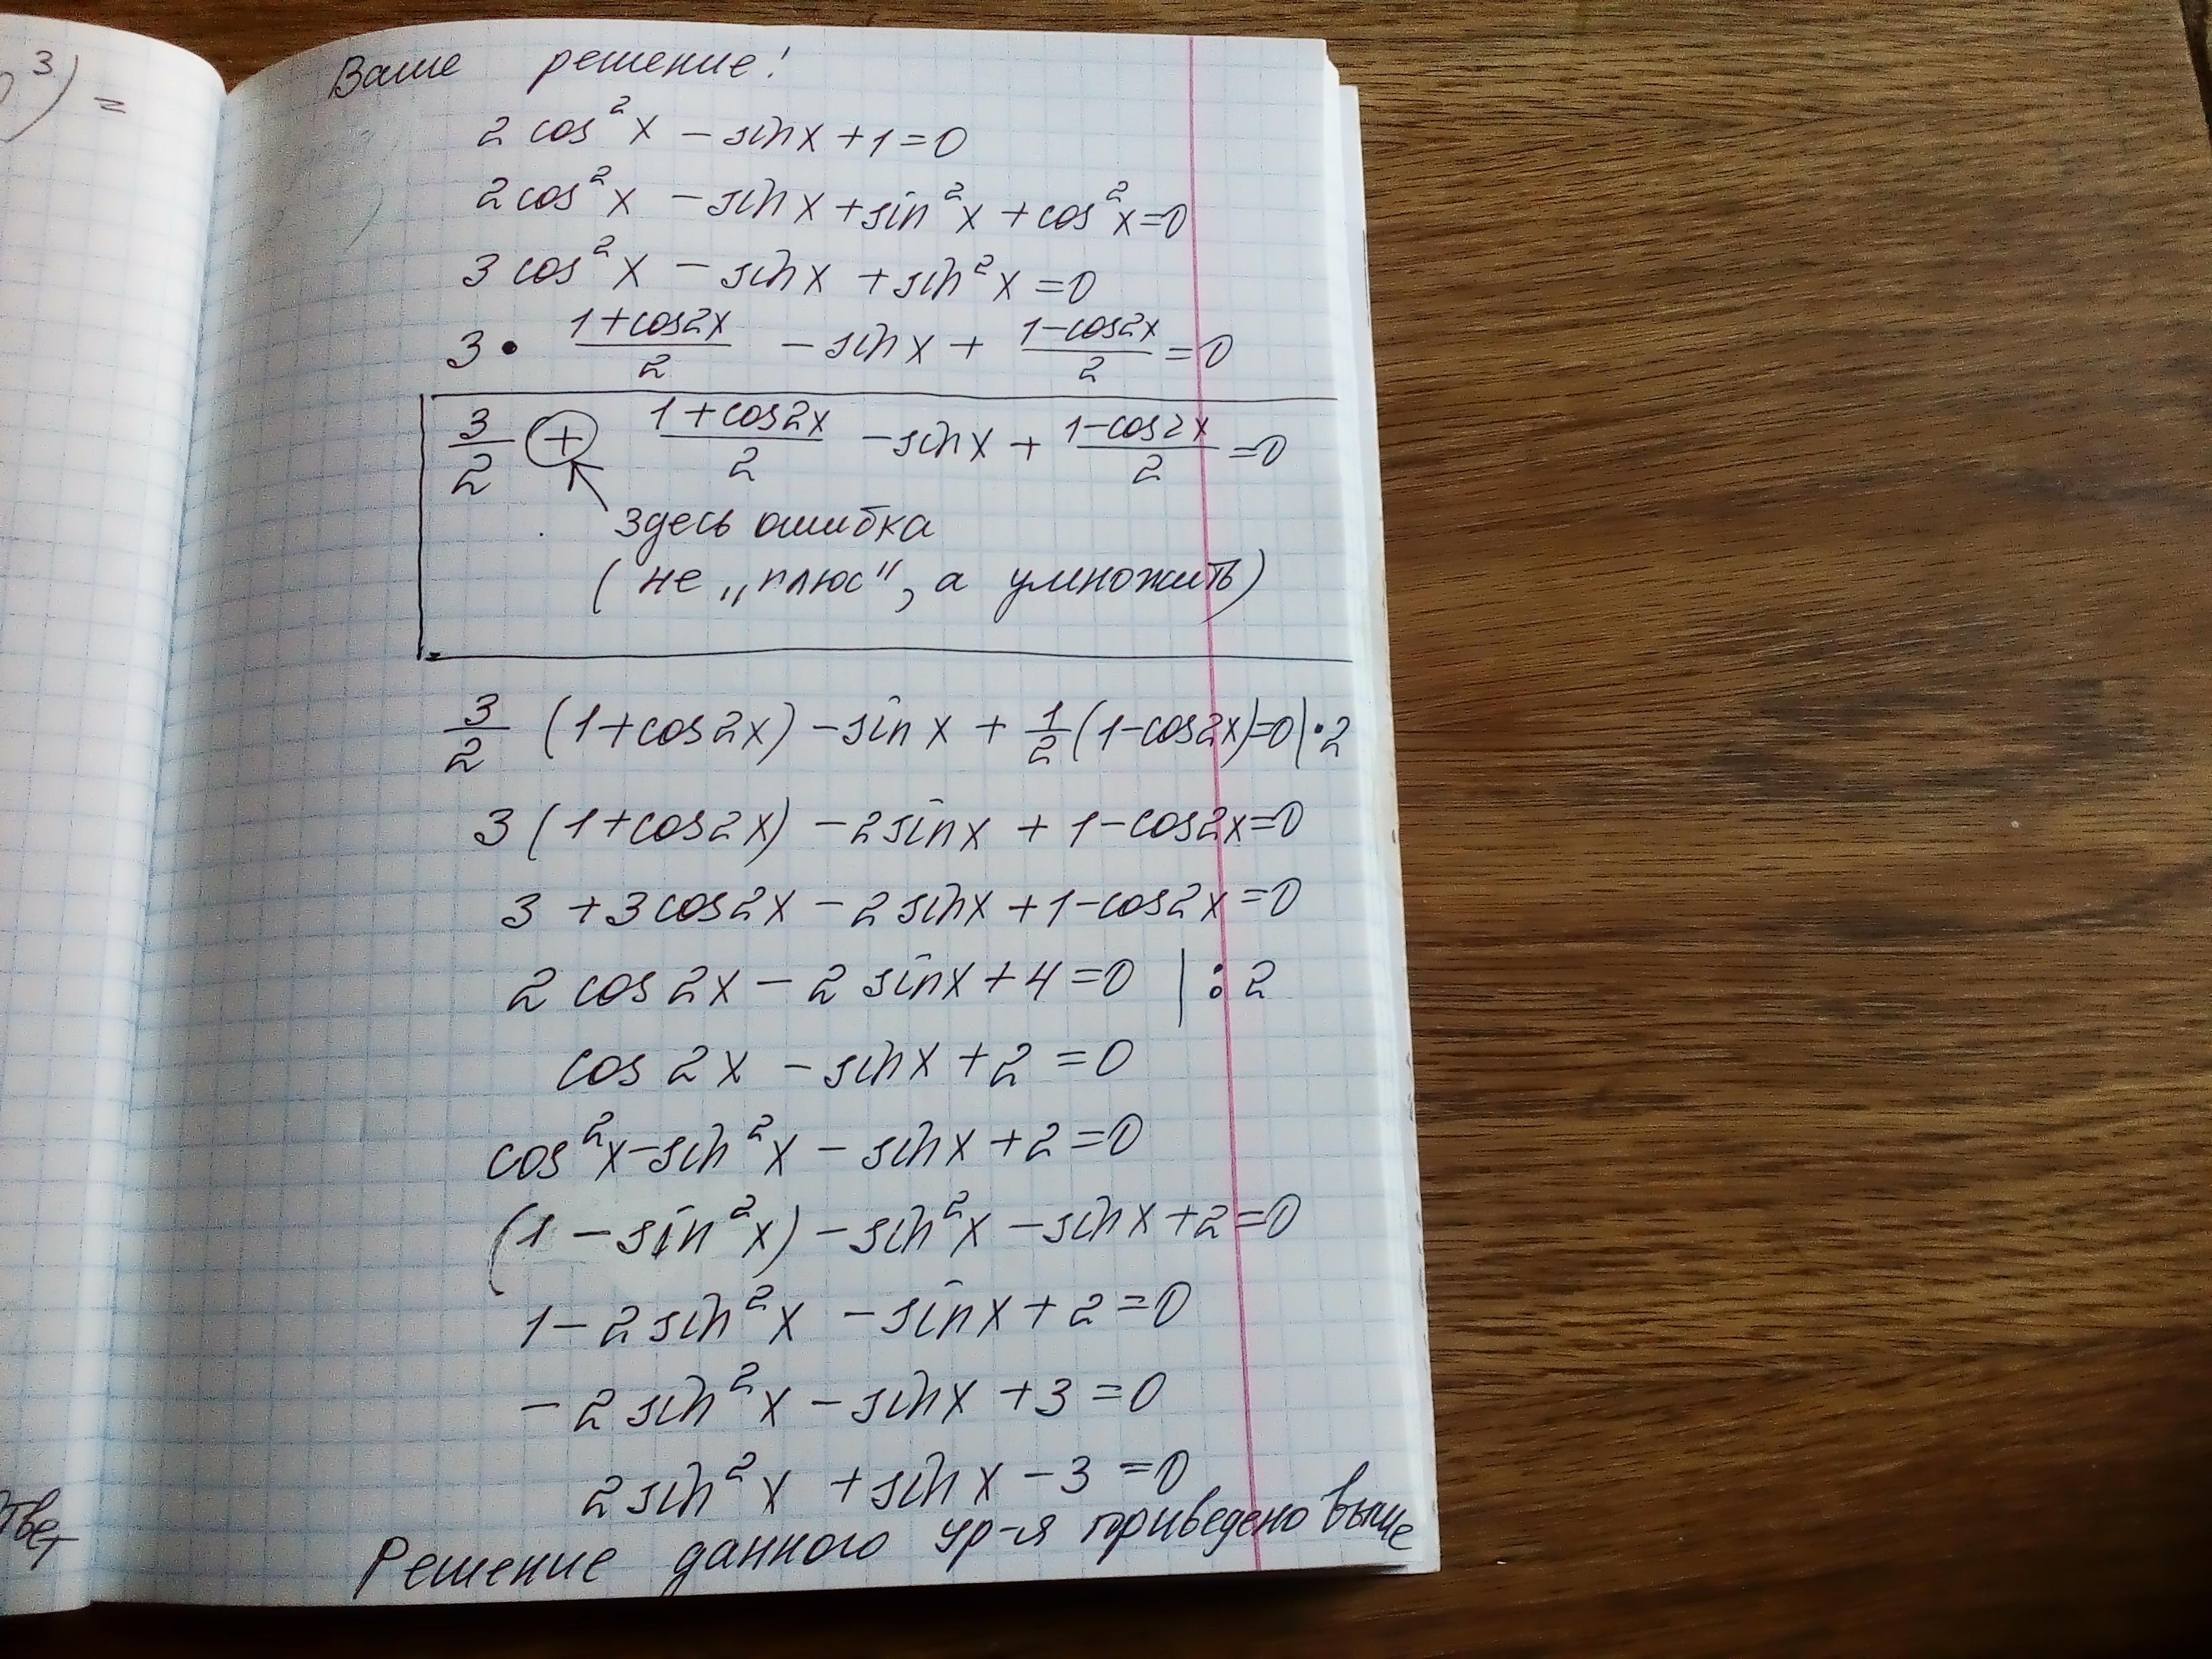 ³) =
Ваше решение!
2 cos²x - sinx + 1 = 0
2cos²x - sinx + sin²x + cos²x = 0
3 cos²x - sinx + sin²x = 0
3 • (1+cos2x)/2 - sinx + (1-cos2x)/2 = 0
3/2 + (1+cos2x)/2 - sinx + (1-cos2x)/2 = 0
здесь ошибка
(не „плюс", а умножить)
3/2 (1+cos2x) - sinx + 1/2 (1-cos2x) = 0 | • 2
3 (1+cos2x) - 2sinx + 1 - cos2x = 0
3 + 3cos2x - 2sinx + 1 - cos2x = 0
2 cos2x - 2 sinx + 4 = 0 | : 2
cos2x - sinx + 2 = 0
cos²x - sin²x - sinx + 2 = 0
(1 - sin²x) - sin²x - sinx + 2 = 0
1 - 2sin²x - sinx + 2 = 0
- 2sin²x - sinx + 3 = 0
2sin²x + sinx - 3 = 0
Решение данного ур-я приведено выше